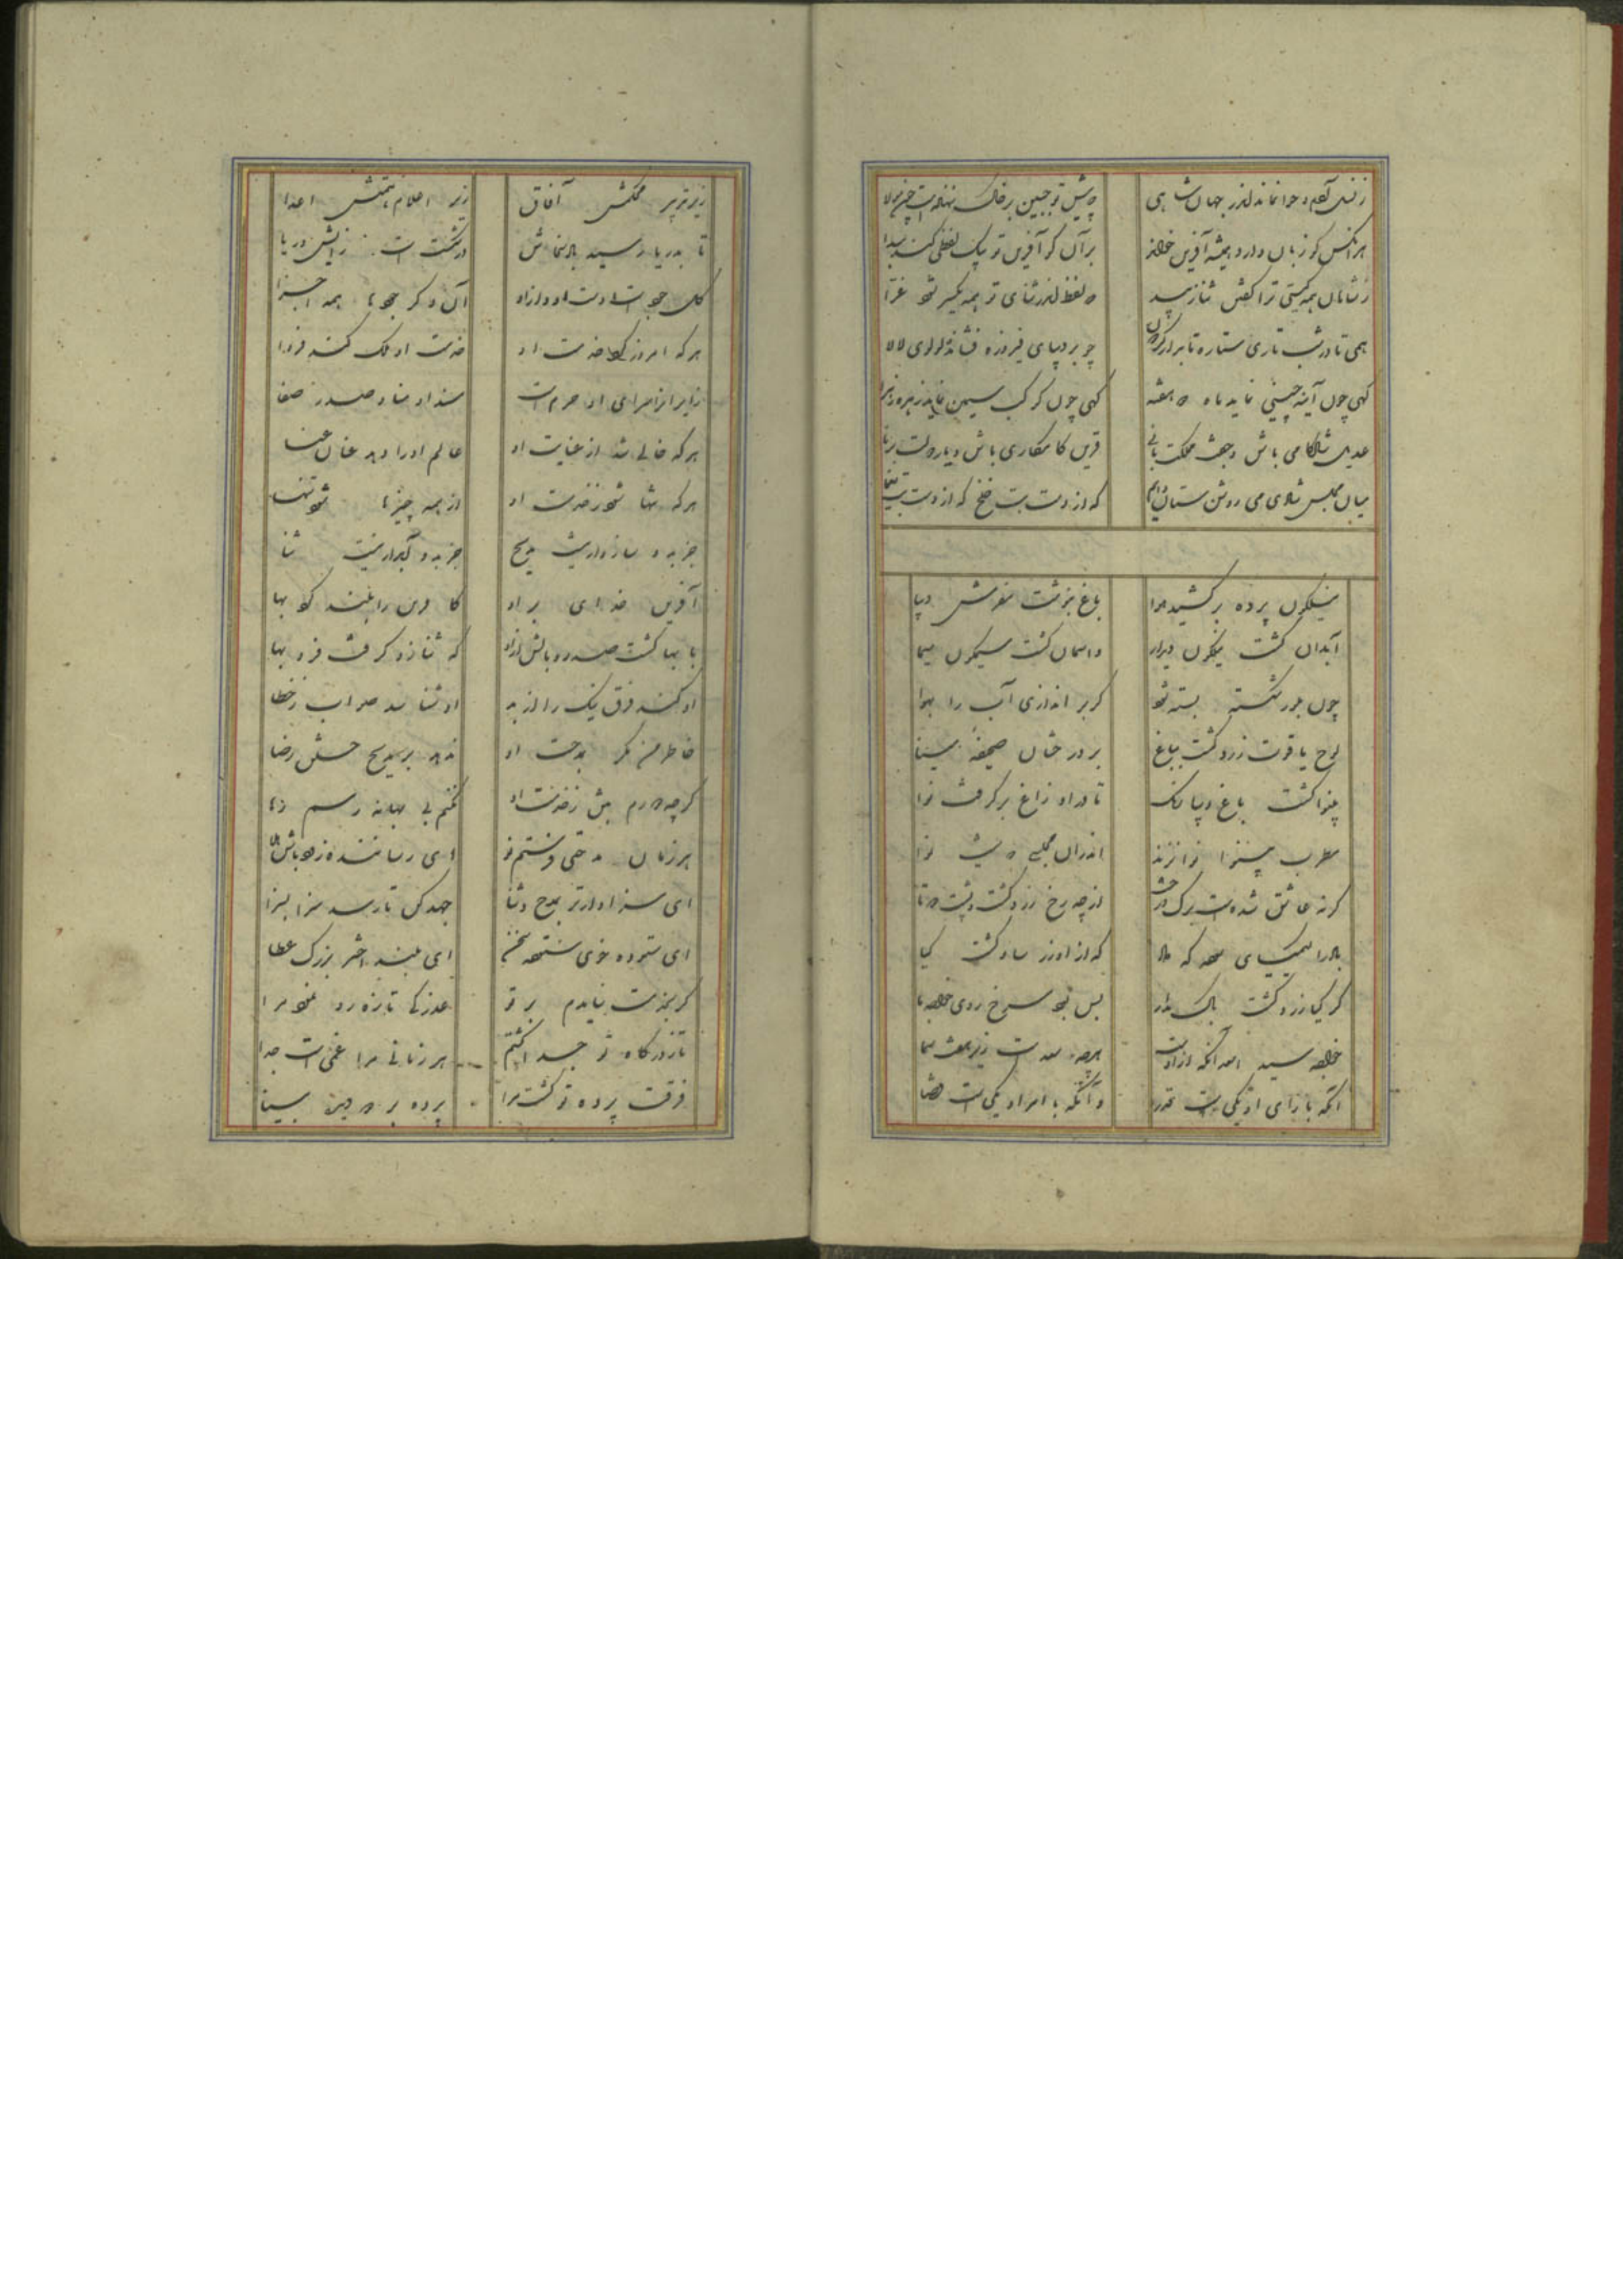 زنسل آدم و حوا نماند اندر جهان شاهی که پیش تو جبین بر خاک ننهادست چون مولا
هر آنکس کو زبان دارد همیشه آفرین خواند بر آن کو آفرین تو بیک لفظی کند پیدا
ز شاهان همه گیتی ثنا گفتن ترا
همی تا در شب تاری ستاره تابد از گردون چو بر دیبای فیروزه فشانی لولوی لالا
گهی چون آینه چینی نماید ماه دو هفته گهی چون کوکب سیمین نماید زهره زهرا
عدیل شادکامی باش و جفت ملکت باقی قرین کامکاری باش و یار دولت برنا
میان مجلس شادی می روشن ستان دایم گه از دست بت خلخ گه از دست بت یغما
نیلگون پرده بر کشید هوا باغ بنوشت مفرش دیبا
آبدان گشت نیلگون دیدار و آسمان گشت سیمگون سیما
چون بلور شکسته بسته شود گر بر اندازی آب را بهوا
لوح یاقوت زرد گشت بباغ بر درختان صحیفه مینا
بینوا گشت باغ دیبا رنگ تا در او زاغ برگرفت نوا
مطرب بینوا نوا نزند اندر آن مجلسی که نیست نوا
گر نه عاشق شدست برگ درخت از چه رخ زرد گشت و پشت دوتا
باد را کیمیای سوده که داد که ازو زر ساو گشت گیا
گر گیا زرد گشت باک مدار بس بود سرخ روی خواجه ما
خواجه سید اسعد آنکه ازوست هر چه سعدست زیر هفت سما
آنکه با رای او یکیست قدر و آنکه با امر او یکیست قضا
زیر تدبیر محکمش آفاق زیر اعلام همتش اعدا
کل جودست دست او دایم آن دگر جودها همه اجزا
هر که امروز کرد خدمت او خدمت او ملک کند فردا
زایر از سرای او حرم است مسند او منا و صدر صفا
هر که خالی شد از عنایت او عالم او را دهد عنان عنا
هر که تنها شود ز خدمت او از همه چیزها شود تنها
جز بدو سازوار نیست مدیح جز بدو آبدار نیست ثنا
آفرین خدای بر او کافرین را بلند کرد بها
با بها گشت صدر و بالش ازو که ثنا زو گرفت فر و بها
او کند فرق نیک را از بد او شناسد صواب را ز خطا
خاطر من مگر بمدحت او ندهد بر مدیح خلق رضا
گر چه دورم بتن ز خدمت او نکنم بی بهانه رسم رها
هر زمان مدحتی فرستم نو
ای سزاوارتر بمدح و ثنا جهد کن تا رسد سزا بسزا
ای ستوده خوی ستوده سخن ای بلند اختر بزرگ عطا
گر بخدمت نیامدم بر تو عذرکی تازه رو نمود مرا
تا ز درگاه تو جدا گشتم هر زمانی مرا غمی است جدا
فرقت پرده تو گشت مرا پرده بر دو دیده بینا